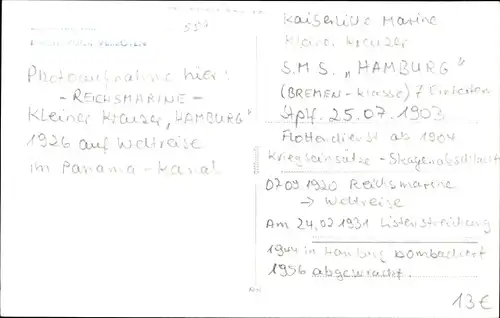 Photoaufnahme hier:
- REICHSMARINE -
Kleiner Kreuzer „HAMBURG"
1926 auf Weltreise
im Panama-Kanal
Kaiserliche Marine
Kleiner Kreuzer
S.M.S. „HAMBURG"
(BREMEN-Klasse) 7 Einheiten
Stplf. 25.07.1903
Flottendienst ab 1904
Kriegseinsätze - Skagerakschlacht
1920 Reichsmarine
→ Weltreise
Am 24.02.1931 Listenstreichung
1944 in Hamburg bombadiert
1956 abgewrackt.
13€